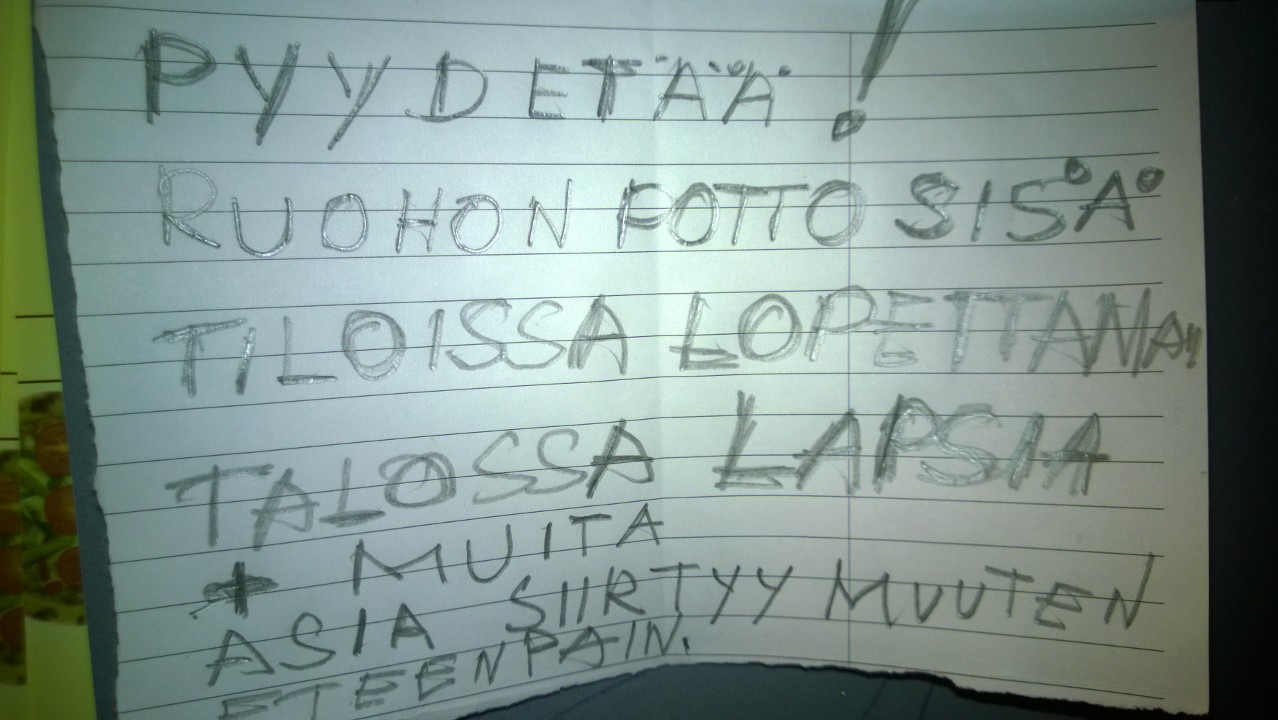 PYYDETÄÄ!
RUOHON POTTO SISÄ
TILOISSA LOPETTAMA!!
TALOSSA LAPSIA
+ MUITA
ASIA SIIRTYY MUUTEN
ETEENPAIN.